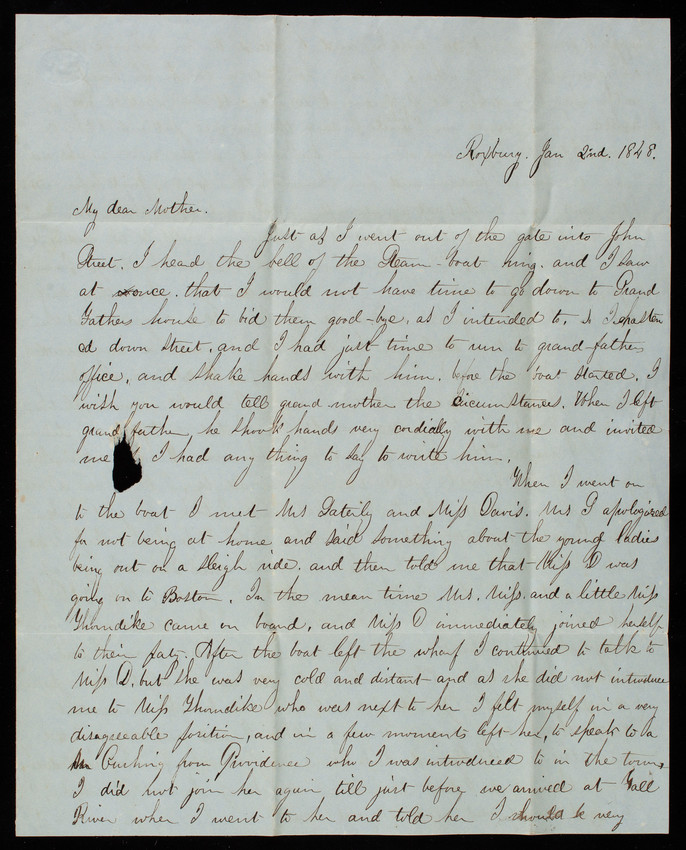 Roxbury. Jan 2nd. 1848.
My dear Mother.
Just as I went out of the gate into John
Street. I heard the bell of the Steam-boat ring. and I saw
at once. that I would not have time to go down to Grand
Fathers house to bid them good-bye, as I intended to. So I hasten
ed down street, and I had just time to run to grand-fathers
office, and shake hands with him. before the boat started. I
wish you would tell grand mother the circumstances. When I left
grand father, he shook hands very cordially with me and invited
me I had any thing to say to write him.
When I went on
to the boat I met Mrs and Miss Davis. Mrs G apologized
for not being at home and said something about the young ladies
being out on a sleigh ride. and then told me that Miss D was
going on to Boston. In the mean time Mrs. Miss. and a little Miss
Thorndike came on board, and Miss D immediately joined herself
to their party. After the boat left the wharf I continued to talk to
Miss D. but she was very cold and distant and as she did not introduce
me to Miss Thorndike who was next to her I felt myself in a very
disagreeable position, and in a few moments left her, to speak to a
Mr Cushing from Providence who I was introduced to in the town,
I did not join her again till just before we arrived at Fall
River when I went to her and told her I should be very